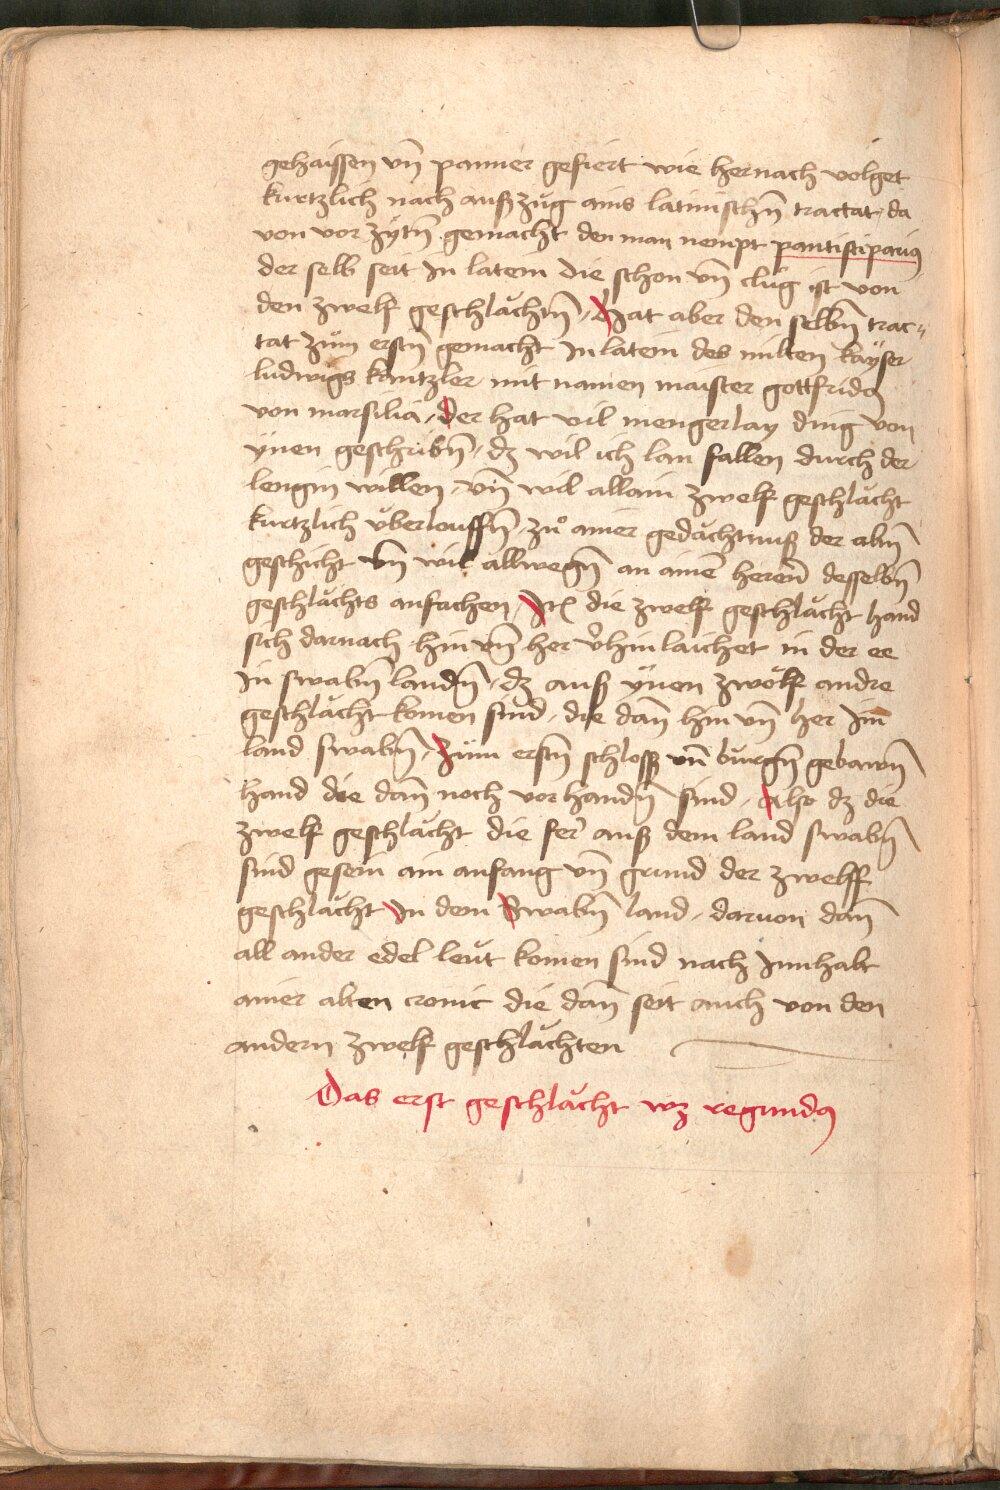 gehaissen vn̄ panner gefiert wie hernach volget
kurtzlich nach auszzug ains latinischn̄ tractat / da
von vor zÿtn̄ gemacht den man nempt pantistiparius
der selb seit in latein die schon vn̄ clůg ist von
den zwelf geschlächtn̄ / Hat aber den selbn̄ trac-
tat zům erstn̄ gemacht in latein des milten kaÿser
ludwigs kantzler mit namen maister gottfridus
von marsilia / der hat vil mengerlay ding von
ÿnen geschribn̄ / dz wil ich lan fallen durch der
lengin willen / vn̄ wil allain zwelf geschlächt
kurtzlich v̈berlouffn̄ / zů ainer gedächtnusz der altn̄
geschicht vn̄ wil allwegn̄ an ainē herern̄ desselbn̄
geschlächts anfachen / Itē die zwelf geschlächt hand
sich darnach hin vn̄ her v̄hinlaichet in der ee
in swabn̄ landn̄ / dz ausz ÿnen zwölf andre
geschlächt komen sind / die dan̄ hin vn̄ her Im
land swabn̄ / zům erstn̄ schlosz vn̄ burgn̄ gebawn̄
hand die dan̄ noch vorhandn̄ sind / Also dz die
zwelf geschlächt die ferr̄ ausz dem land swabn̄
sind gesein ain anfang vn̄ grund der zwelff
geschlächt In dem Swabn̄ land / daruon dan̄
all ander edel leut komen sind nach Innhalt
ainer alten cronic die dan̄ seit auch von den
andern zwelf geschlächten
Das erst geschlächt wz regundus